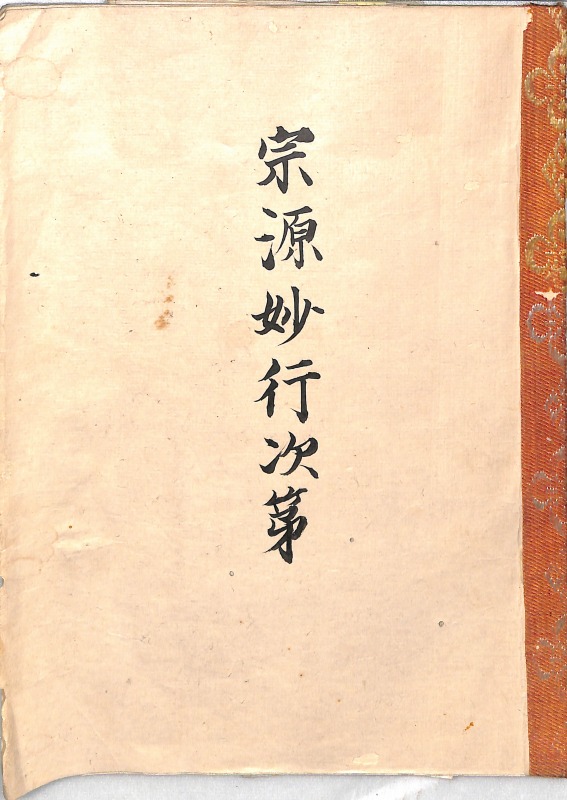 宗源妙行次第